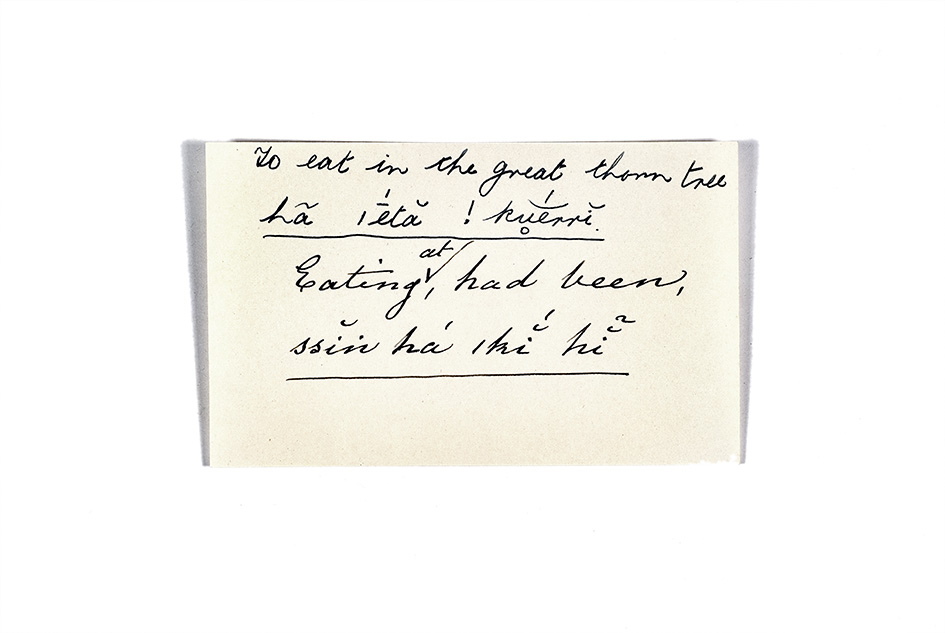 To eat in the great thorn tree
hã ǀḗtă ! kṷérrĭ.
at
Eating, had been,
ssĭn há ǀkĭ́ hĭ̃